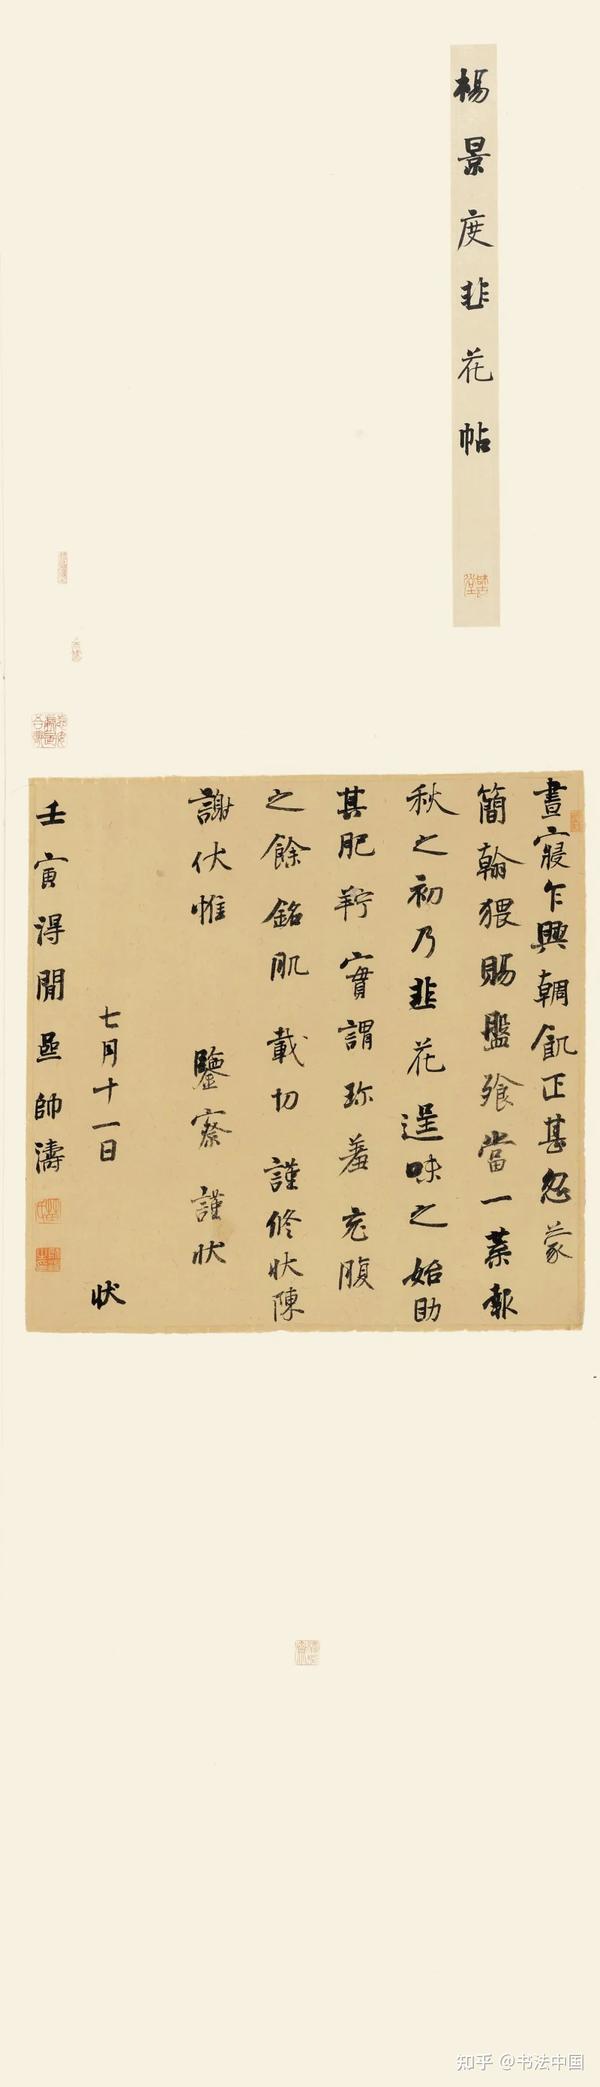 楊景度韭花帖
晝寢乍興輖飢正甚忽蒙
簡翰猥賜盤飱當一葉報
秋之初乃韭花逞味之始助
其肥羜實謂珍羞充腹
之餘銘肌載切 謹修狀陳
謝伏惟 鑒察 謹狀
七月十一日 狀
壬寅得閒 帥濤
知乎 @书法中国